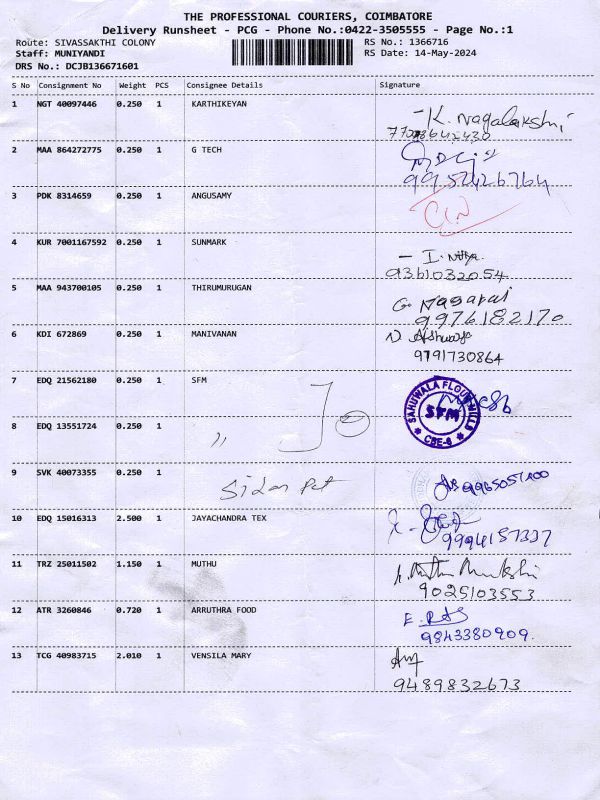 THE PROFESSIONAL COURIERS, COIMBATORE
Delivery Runsheet - PCG - Phone No.:0422-3505555 - Page No.:1
Route: SIVASSAKTHI COLONY RS No.: 1366716
Staff: MUNIYANDI RS Date: 14-May-2024
DRS No.: DCJB136671601
S No Consignment No Weight PCS Consignee Details Signature
1 NGT 40097446 0.250 1 KARTHIKEYAN - K. Nagalakshmi
2 MAA 864272775 0.250 1 G TECH
9952426764
3 PDK 8314659 0.250 1 ANGUSAMY
4 KUR 7001167592 0.250 1 SUNMARK - I. Nithya
9361032054
5 MAA 943700105 0.250 1 THIRUMURUGAN G. Nagaraj
9976182170
6 KDI 672869 0.250 1 MANIVANAN
9791730864
7 EDQ 21562180 0.250 1 SFM SAHUWALA FLOUR MILLS
SFM
CBE-6
8 EDQ 13551724 0.250 1 "
9 SVK 40073355 0.250 1
10 EDQ 15016313 2.500 1 JAYACHANDRA TEX
9994157337
11 TRZ 25011502 1.150 1 MUTHU
9025103553
12 ATR 3260846 0.720 1 ARRUTHRA FOOD
9843380909.
13 TCG 40983715 2.010 1 VENSILA MARY
9489832673